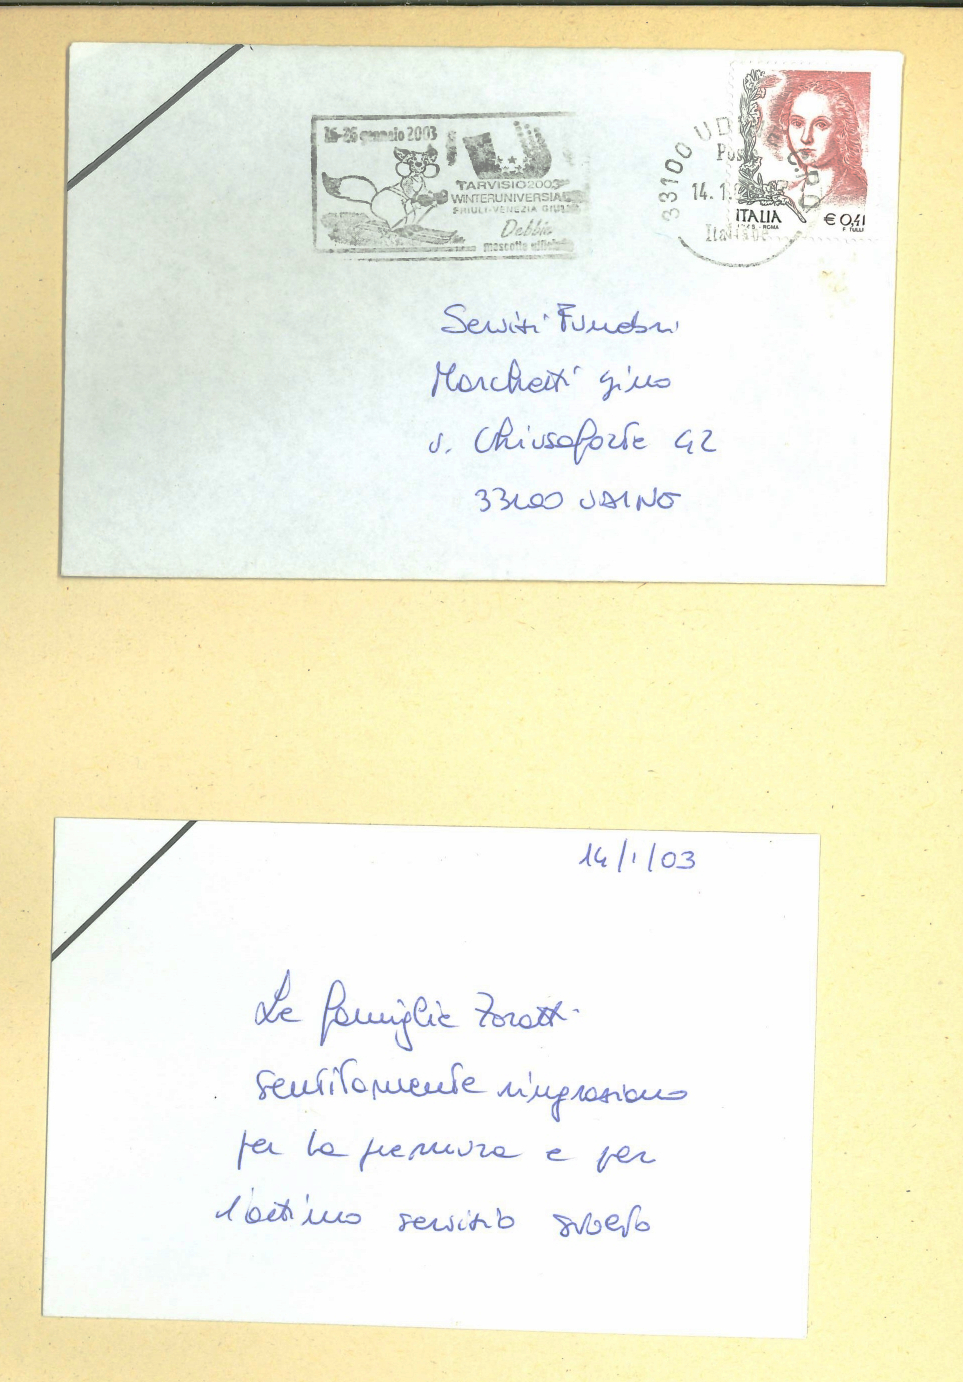 16-26 gennaio 2003
TARVISIO2003
WINTERUNIVERSIA
FRIULI-VENEZIA GIU
Debbie
mascotte ufficiale
33100 UD
Pos
14. 1.
Italiane
ITALIA
ROMA
€ 0,41
F. TULLI
Servizi Funebri
Marchetti Gino
v. Chiusaforte 42
33100 UDINE
14/1/03
Le famiglie Zoratti
sentitamente ringraziano
per la premura e per
l'ottimo servizio svolto